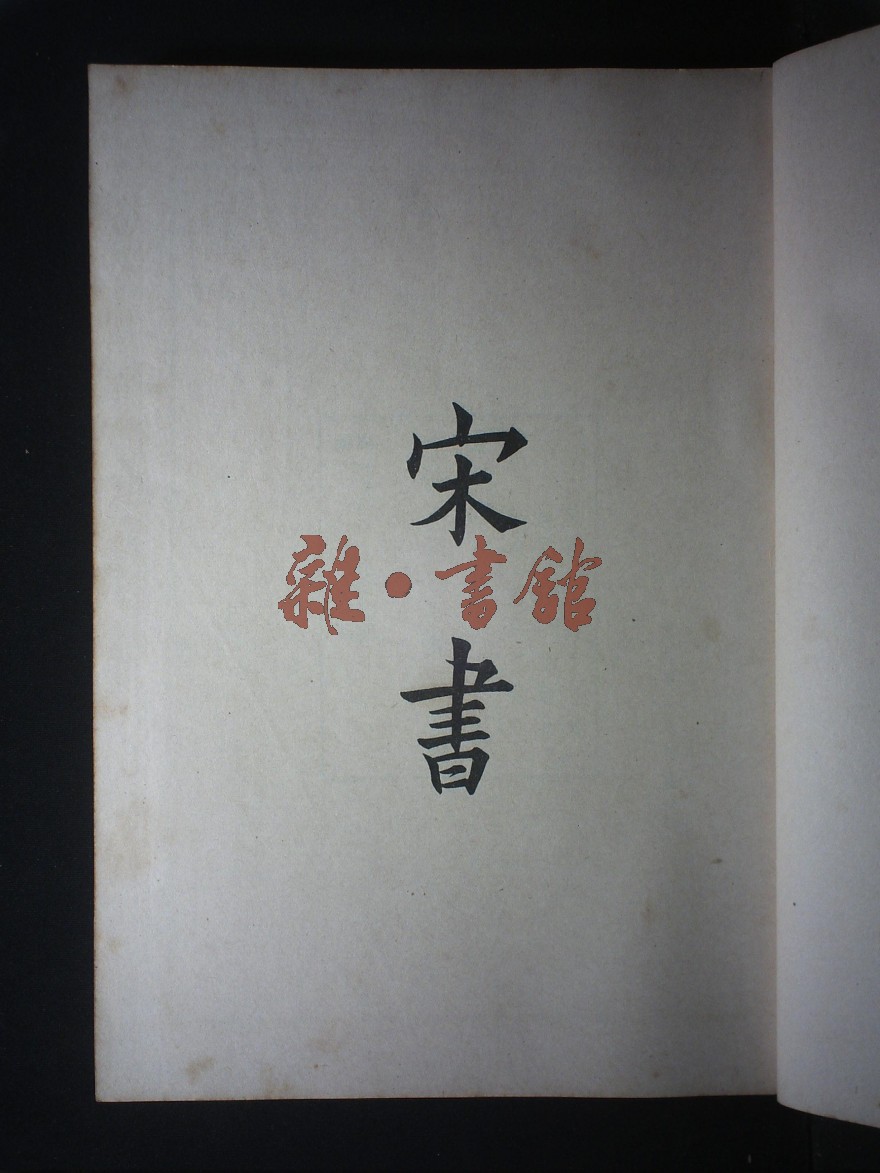 宋書
雜·書館